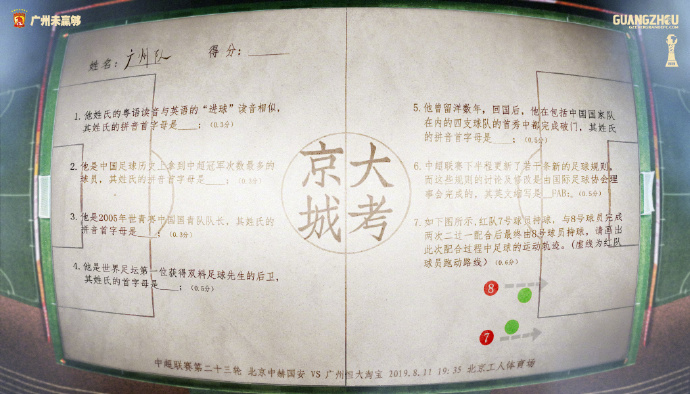 广州未赢够
GUANGZHOU
姓名：广州队
得分：
1. 他姓氏的粤语读音与英语的“进球”读音相似，
其姓氏的拼音首字母是____；（0.5分）
2. 他是中国足球历史上拿到中超冠军次数最多的
球员，其姓氏的拼音首字母是____；（0.5分）
3. 他是2005年世青赛中国国青队队长，其姓氏的
拼音首字母是____；（0.5分）
4. 他是世界足坛第一位获得双料足球先生的后卫，
其姓氏的首字母是____；（0.5分）
大考
京城
5. 他曾留洋数年，回国后，他在包括中国国家队
在内的四支球队的首秀中都完成破门，其姓氏
的拼音首字母是____；（0.5分）
6. 中超联赛下半程更新了若干条新的足球规则，
而这些规则的讨论及修改是由国际足球协会理
事会完成的，其英文缩写是__FAB；（0.5分）
7. 如下图所示，红队7号球员持球，与8号球员完成
两次二过一配合后最终由8号球员持球，请画出
此次配合过程中足球的运动轨迹。（虚线为红队
球员跑动路线）（0.6分）
8
7
中超联赛第二十三轮 北京中赫国安 VS 广州恒大淘宝 2019.8.11 19:35 北京工人体育场